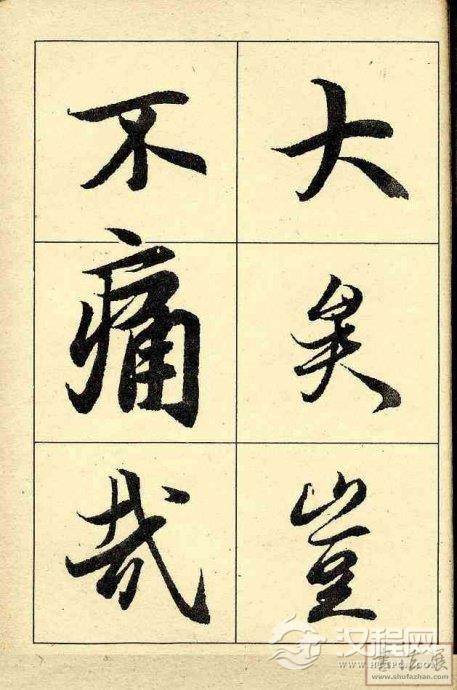 大矣豈
不痛哉
汉程网
www.shufazhan.com